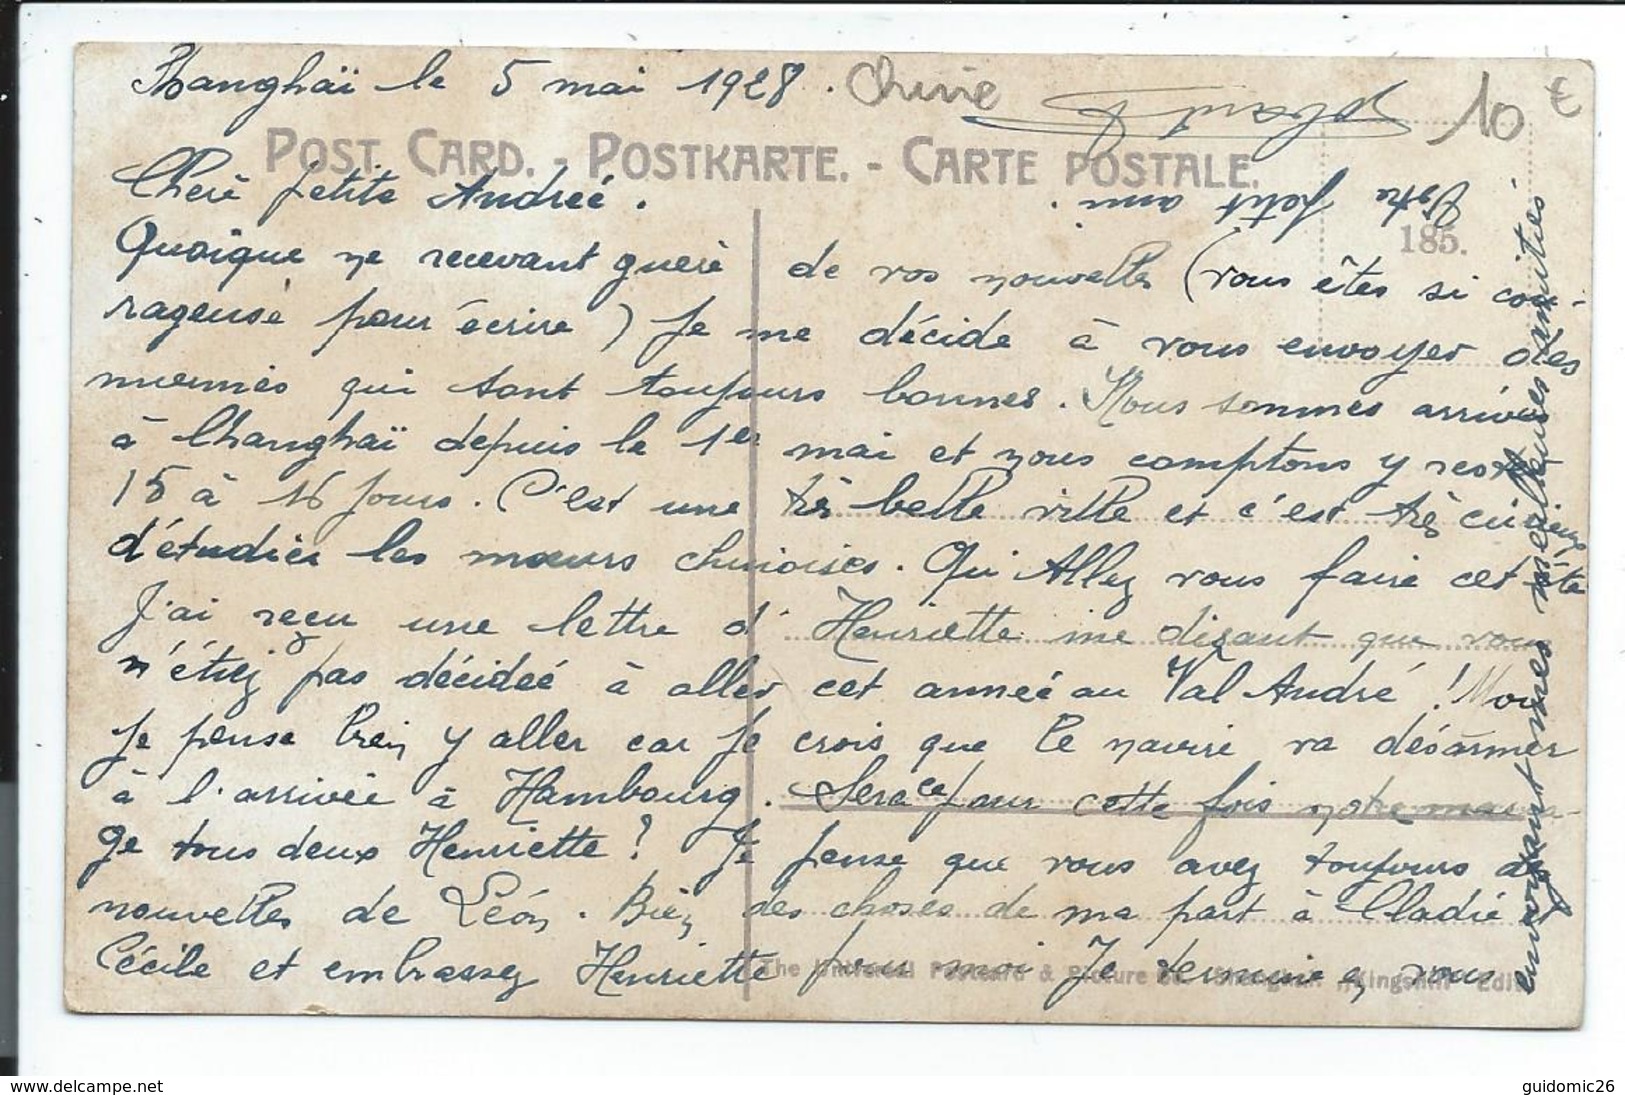 Shanghaï le 5 mai 1928. Chine
10 €
POST CARD. - POSTKARTE. - CARTE POSTALE.
185.
Chère petite Andrée.
Quoique ne recevant guère de vos nouvelles (vous êtes si cou-
rageuse pour écrire) je me décide à vous envoyer des
miennes qui sont toujours bonnes. Nous sommes arrivés
à Changhaï depuis le 1er mai et nous comptons y rester
15 à 16 jours. C'est une très belle ville et c'est très curieux
d'étudier les mœurs chinoises. Qu'Allez vous faire cet été
J'ai reçu une lettre d'Henriette me disant que vous
n'étiez pas décidée à aller cet année au Val André ! Moi
je pense bien y aller car je crois que le navire va désarmer
à l'arrivée à Hambourg. Sera ce pour cette fois notre maria-
ge tous deux Henriette ? Je pense que vous avez toujours des
nouvelles de Léon. Bien des choses de ma part à Cladie et
Cécile et embrassez Henriette pour moi Je termine en vous
envoyant mes meilleures amitiés
Votre petit ami.
The Universal Postcard & Picture Co. Shanghai. "Kingshill" Edit.
www.delcampe.net
guidomic26